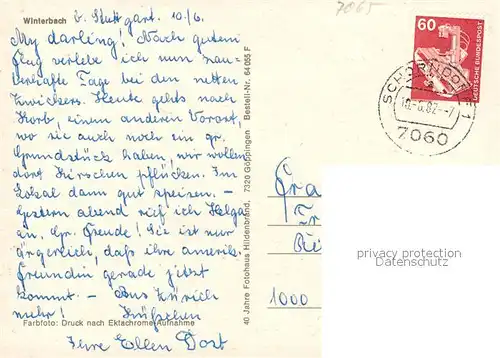 Winterbach b. Stuttgart. 10./6.
My darling! Nach gutem
Flug verlebe ich nun zau-
berhafte Tage bei den netten
Zwickers. Heute gehts nach
Korb, einem anderen Vorort,
wo sie auch noch ein gr.
Grundstück haben, wir wollen
dort Kirschen pflücken. Im
Lokal dann gut speisen. –
Gestern abend rief ich Helga
an. Gr. Freude! Sie ist nur
ärgerlich, daß ihre amerik.
Freundin gerade jetzt
kommt. – Aus Zürich
mehr! Küßchen
Farbfoto: Druck nach Ektachrome-Aufnahme
Ihre Ellen Dost
40 Jahre Fotohaus Hildenbrand, 7320 Göppingen Bestell-Nr. 64 055 F
7065
60
DEUTSCHE BUNDESPOST
SCHORNDORF 1
10.-6.82.-7
7060
Fra
1000
privacy protection
by Oldthing.de